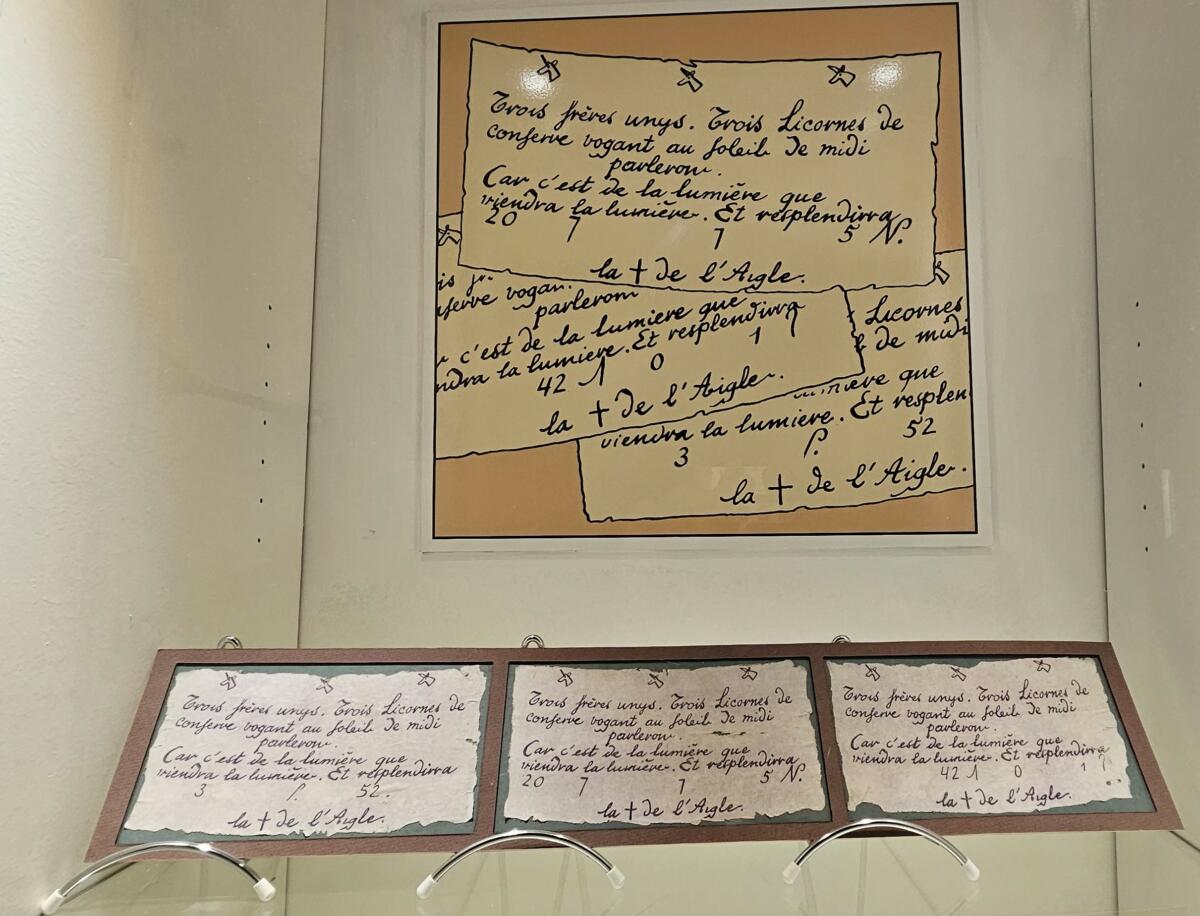 Trois frères unys. Trois Licornes de
conserve vogant au soleil de midi
parleron.
Car c'est de la lumière que
viendra la lumière. Et resplendirra
20 7 7 5 N.
la † de l'Aigle.
is
nserve vogan.
parleron
c'est de la lumiere que
ndra la lumiere. Et resplendirra
42 1 0 1
la † de l'Aigle.
Licornes
de midi
miere que
viendra la lumiere. Et resplen
3 52
la † de l'Aigle.
Trois frères unys. Trois Licornes de
conserve vogant au soleil de midi
parleron.
Car c'est de la lumière que
viendra la lumière. Et resplendirra
3 52.
la † de l'Aigle.
Trois frères unys. Trois Licornes de
conserve vogant au soleil de midi
parleron.
Car c'est de la lumière que
viendra la lumière. Et resplendirra
20 7 7 5 N.
la † de l'Aigle.
Trois frères unys. Trois Licornes de
conserve vogant au soleil de midi
parleron.
Car c'est de la lumière que
viendra la lumière. Et resplendirra
42 1 0 1
la † de l'Aigle.